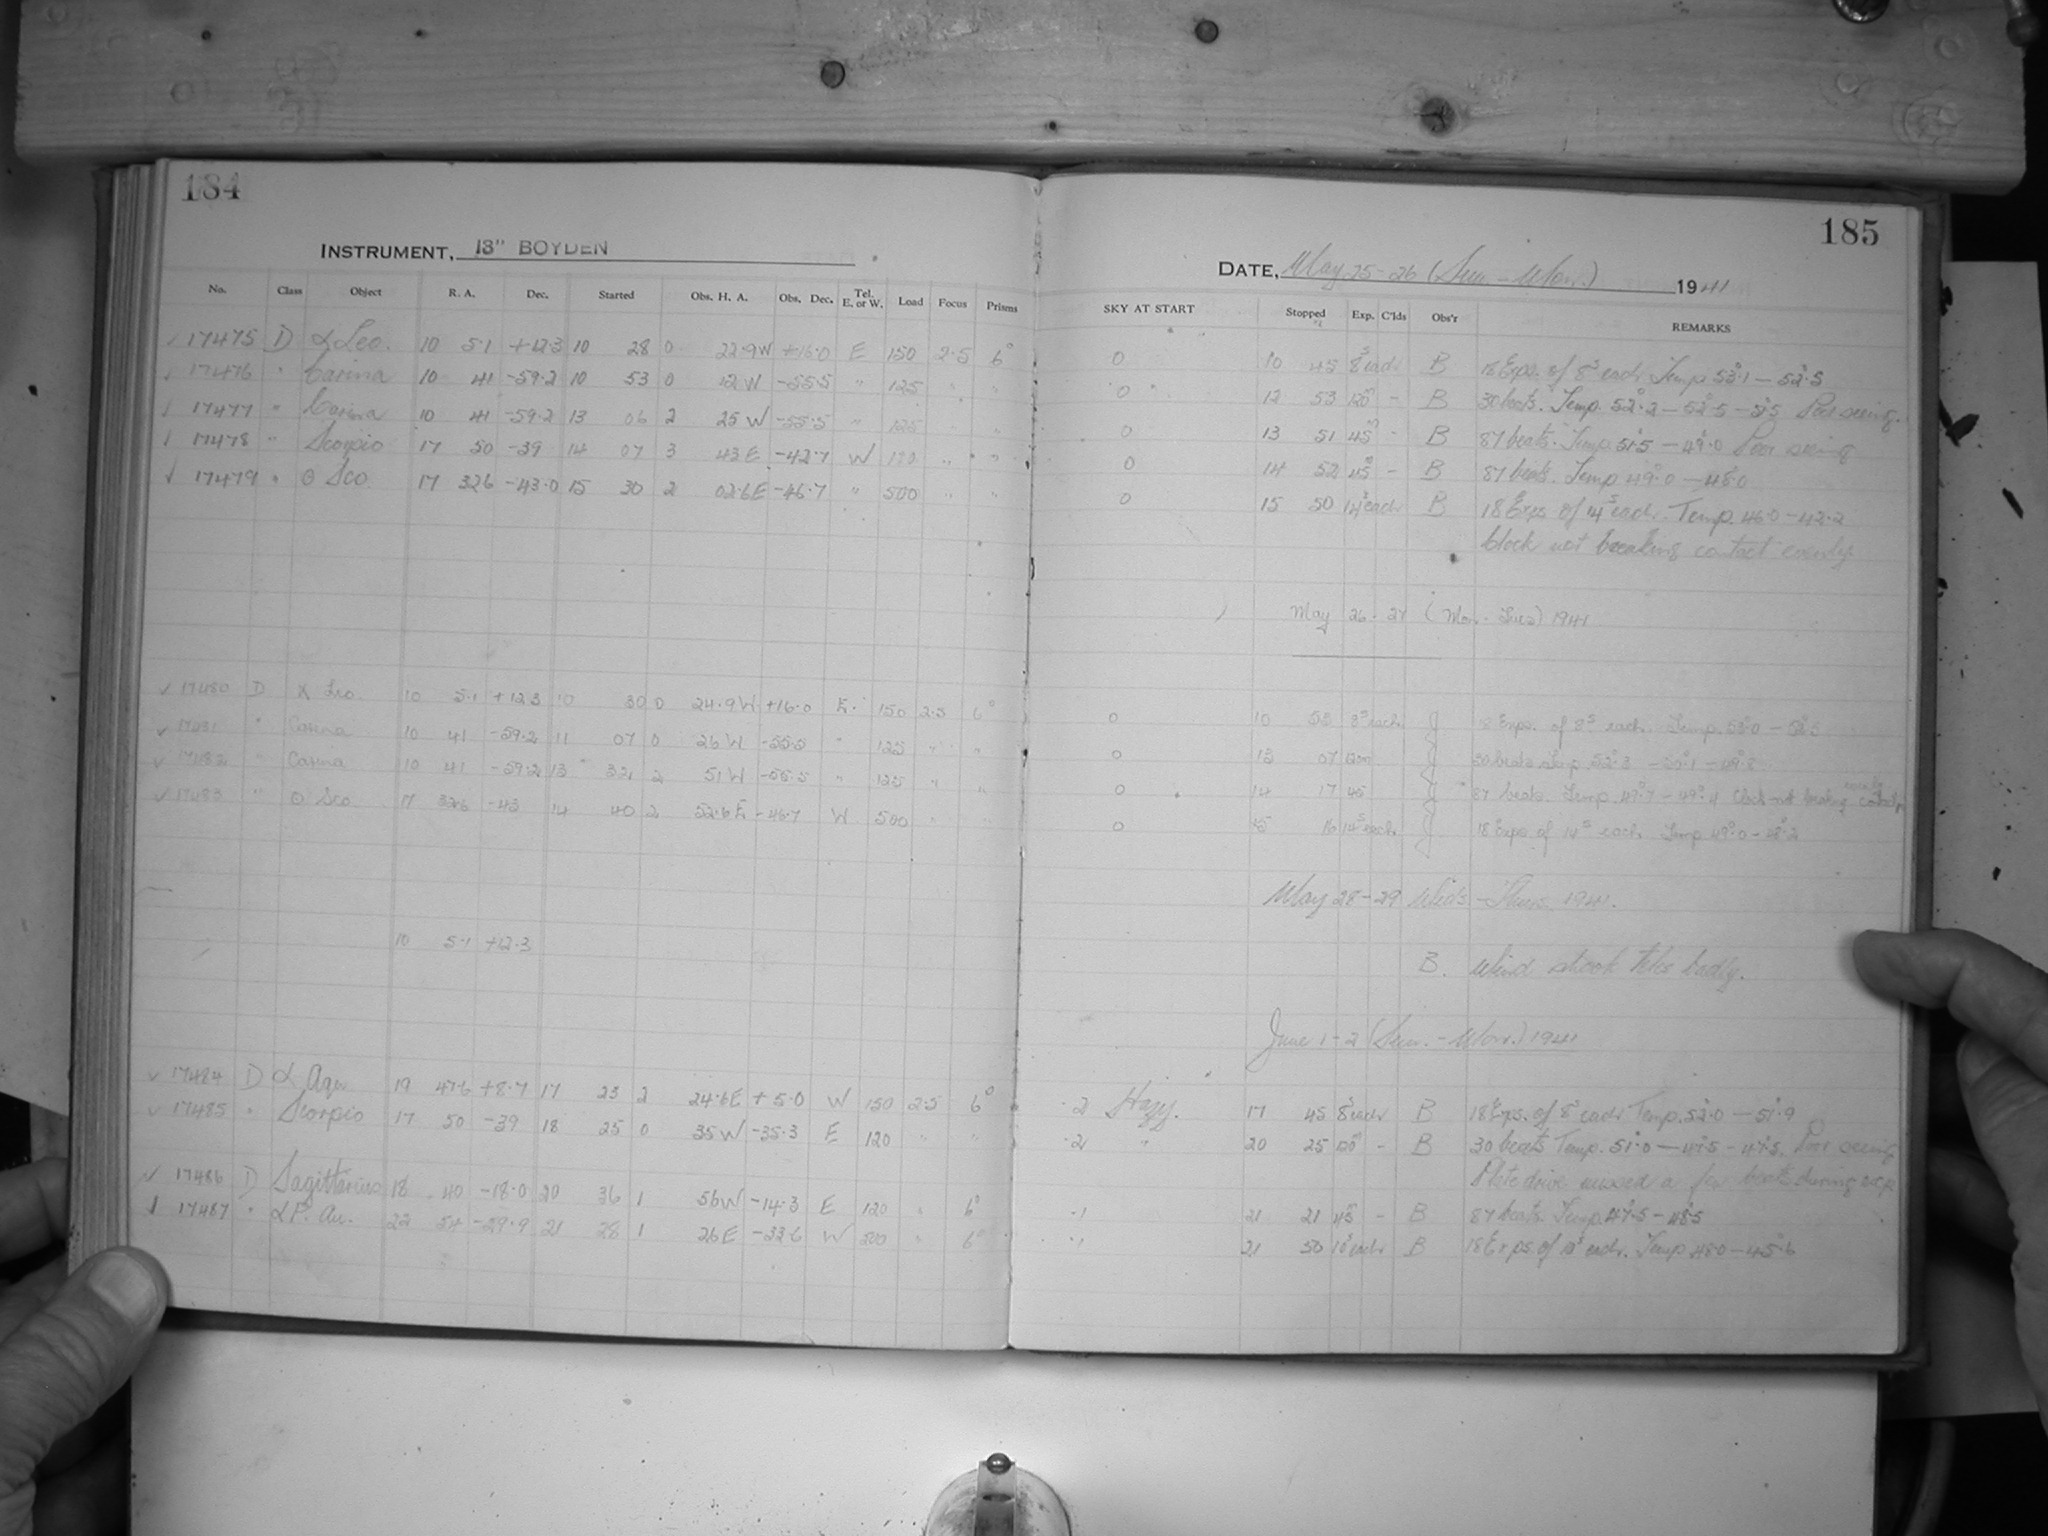 184
INSTRUMENT, 13" BOYDEN
No. Class Object R. A. Dec. Started Obs. H. A. Obs. Dec. Tel. E. or W. Load Focus Prisms
✓ 17475 D α Leo. 10 5.1 +12.3 10 28 0 22.9W +16.0 E 150 2.5 6°
✓ 17476 " Carina 10 41 -59.2 10 53 0 12W -55.5 " 125 " "
✓ 17477 " Carina 10 41 -59.2 13 06 2 25W -55.5 " 125 " "
✓ 17478 " Scorpio 17 50 -39 14 07 3 43E -42.7 W 120 " "
✓ 17479 " θ Sco 17 32.6 -43.0 15 30 2 02.6E -46.7 " 500 " "
✓ 17480 D α Leo. 10 5.1 +12.3 10 30 0 24.9W +16.0 E. 150 2.5 6°
✓ 17481 " Carina 10 41 -59.2 11 07 0 26W -55.5 " 125 " "
✓ 17482 " Carina 10 41 -59.2 13 32 2 51W -55.5 " 125 " "
✓ 17483 " θ Sco 17 32.6 -43 14 40 2 52.6E -46.7 W 500 " "
10 5.1 +12.3
✓ 17484 D α Aqu 19 47.6 +8.7 17 23 2 24.6E +5.0 W 150 2.5 6°
✓ 17485 " Scorpio 17 50 -39 18 25 0 35W -35.3 E 120 " "
✓ 17486 D Sagittarius 18 40 -18.0 20 36 1 56W -14.3 E 120 " 6°
✓ 17487 " α P. Au. 22 54 -29.9 21 28 1 26E -33.6 W 200 " 6°
185
DATE, May 25-26 (Sun. - Mon.) 1941
SKY AT START Stopped Exp. C'lds Obs'r REMARKS
0 10 45 8s each B 18 Exps. of 8s each. Temp. 53°.1 — 52°.5
0 12 53 120m - B 30 beats. Temp. 52°.2 — 52°.5 — 51°.5 Poor seeing.
0 13 51 45m - B 87 beats. Temp. 51°.5 — 49°.0 Poor seeing
0 14 52 45m - B 87 beats. Temp 49°.0 — 48°.0
0 15 50 14s each B 18 Exps of 14s each. Temp. 46.0 — 42.2
Clock not breaking contact evenly.
May 26-27 (Mon. - Tues) 1941
0 10 53 8s each J 18 Exps. of 8s each. Temp. 53°.0 —
0 13 07 120m J 30 beats Temp.
0 14 17 45 J 87 beats. Temp. 49°.7 — 49°.4 Clock not breaking contact evenly
0 15 16 14s each J 18 Exps. of 14s each. Temp 49°.0 — 48°.2
May 28-29 Weds - Thurs. 1941.
B. Wind shook teles badly.
June 1-2 (Sun. - Mon.) 1941
-2 Hazy. 17 45 8s each B 18 Exps. of 8s each Temp. 52°.0 — 51°.9
-2 " 20 25 120m - B 30 beats Temp. 51°.0 — 47°.5 - 47°.5. Poor seeing
Plate drive missed a few beats during exp
-1 21 21 45m - B 87 beats. Temp. 47°.5 — 48°.5
-1 21 50 10s each B 18 Exps of 10s each. Temp. 48.0 — 45°.6